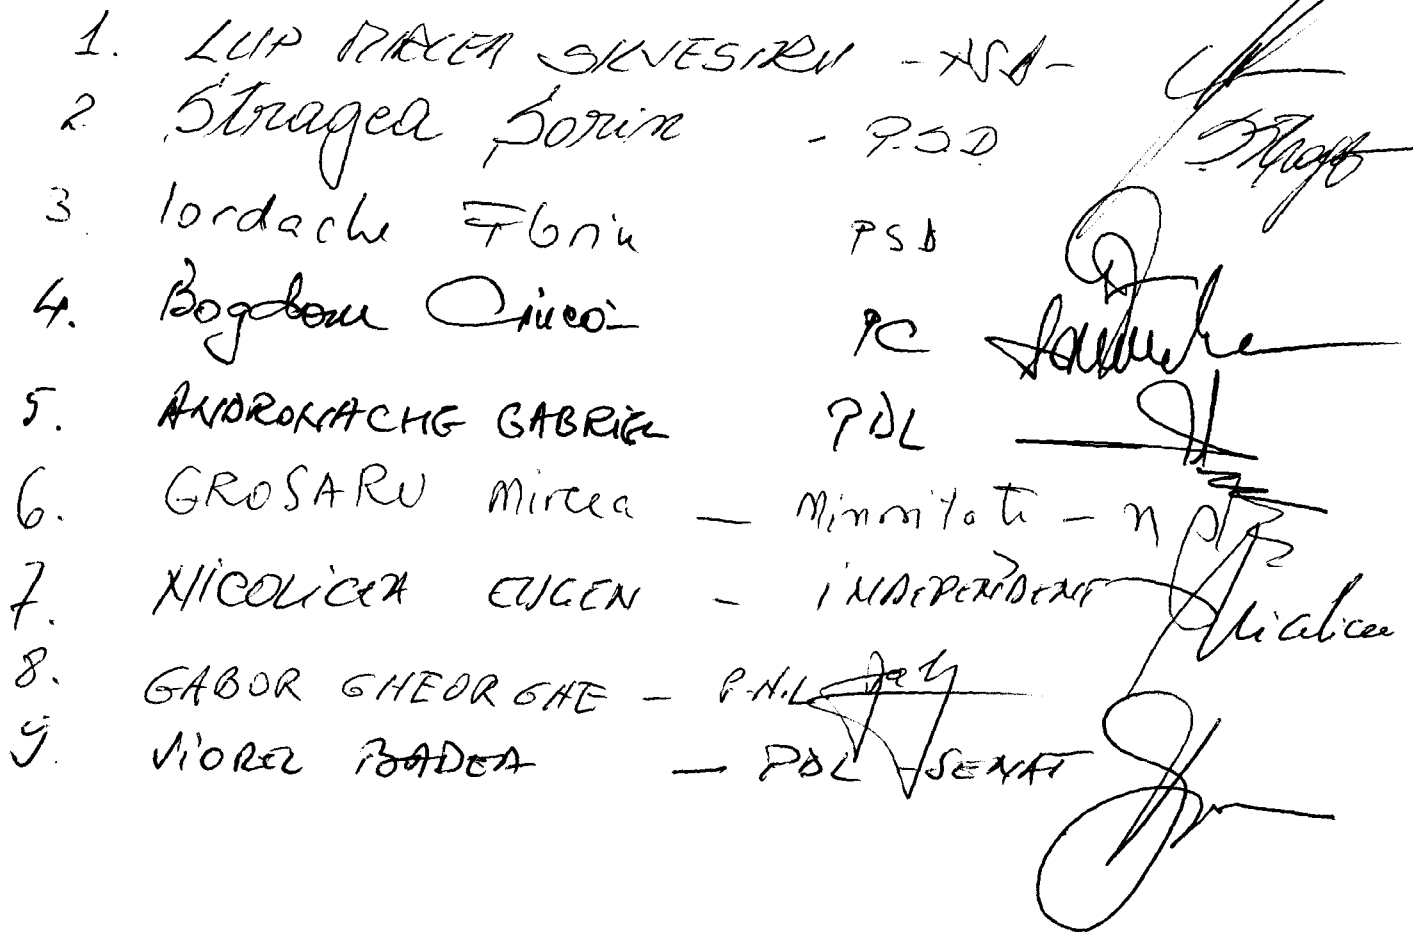 1. LUP MIRCEA SILVESTRU - PSD -
2 Stragea Sorin - P.S.D
3 Iordache Florin PSD
4. Bogdan Ciucă PC
5. ANDRONACHE GABRIEL PDL
6. GROSARU Mircea — Minoritati -
7. NICOLICEA EUGEN - INDEPENDENT
8. GABOR GHEORGHE - P.N.L
9. VIOREL BADEA — PDL - SENAT